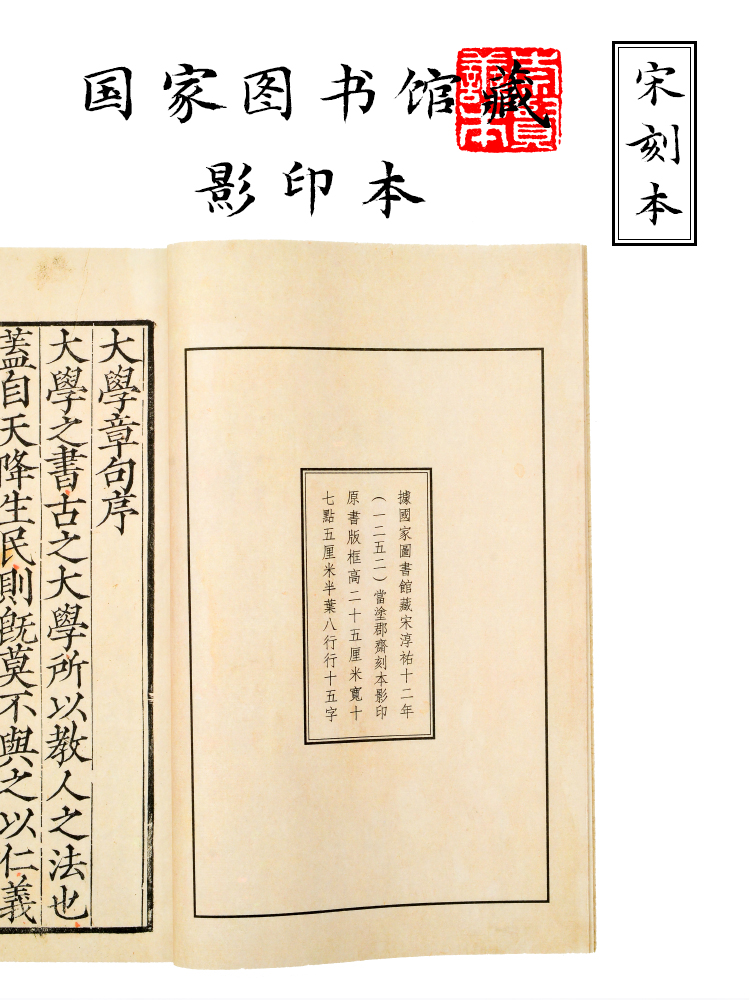 国家图书馆藏
影印本
宋刻本
據國家圖書館藏宋淳祐十二年
（一二五二）當塗郡齋刻本影印
原書版框高二十五厘米寬十
七點五厘米半葉八行行十五字
大學章句序
大學之書古之大學所以教人之法也
蓋自天降生民則旣莫不與之以仁義